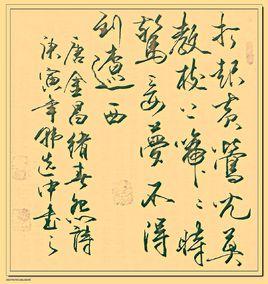 打起黄鶯兒莫
教枝上啼啼時
驚妾夢不得
到遼西
唐金昌緒春怨詩
庚寅年韩选中書之